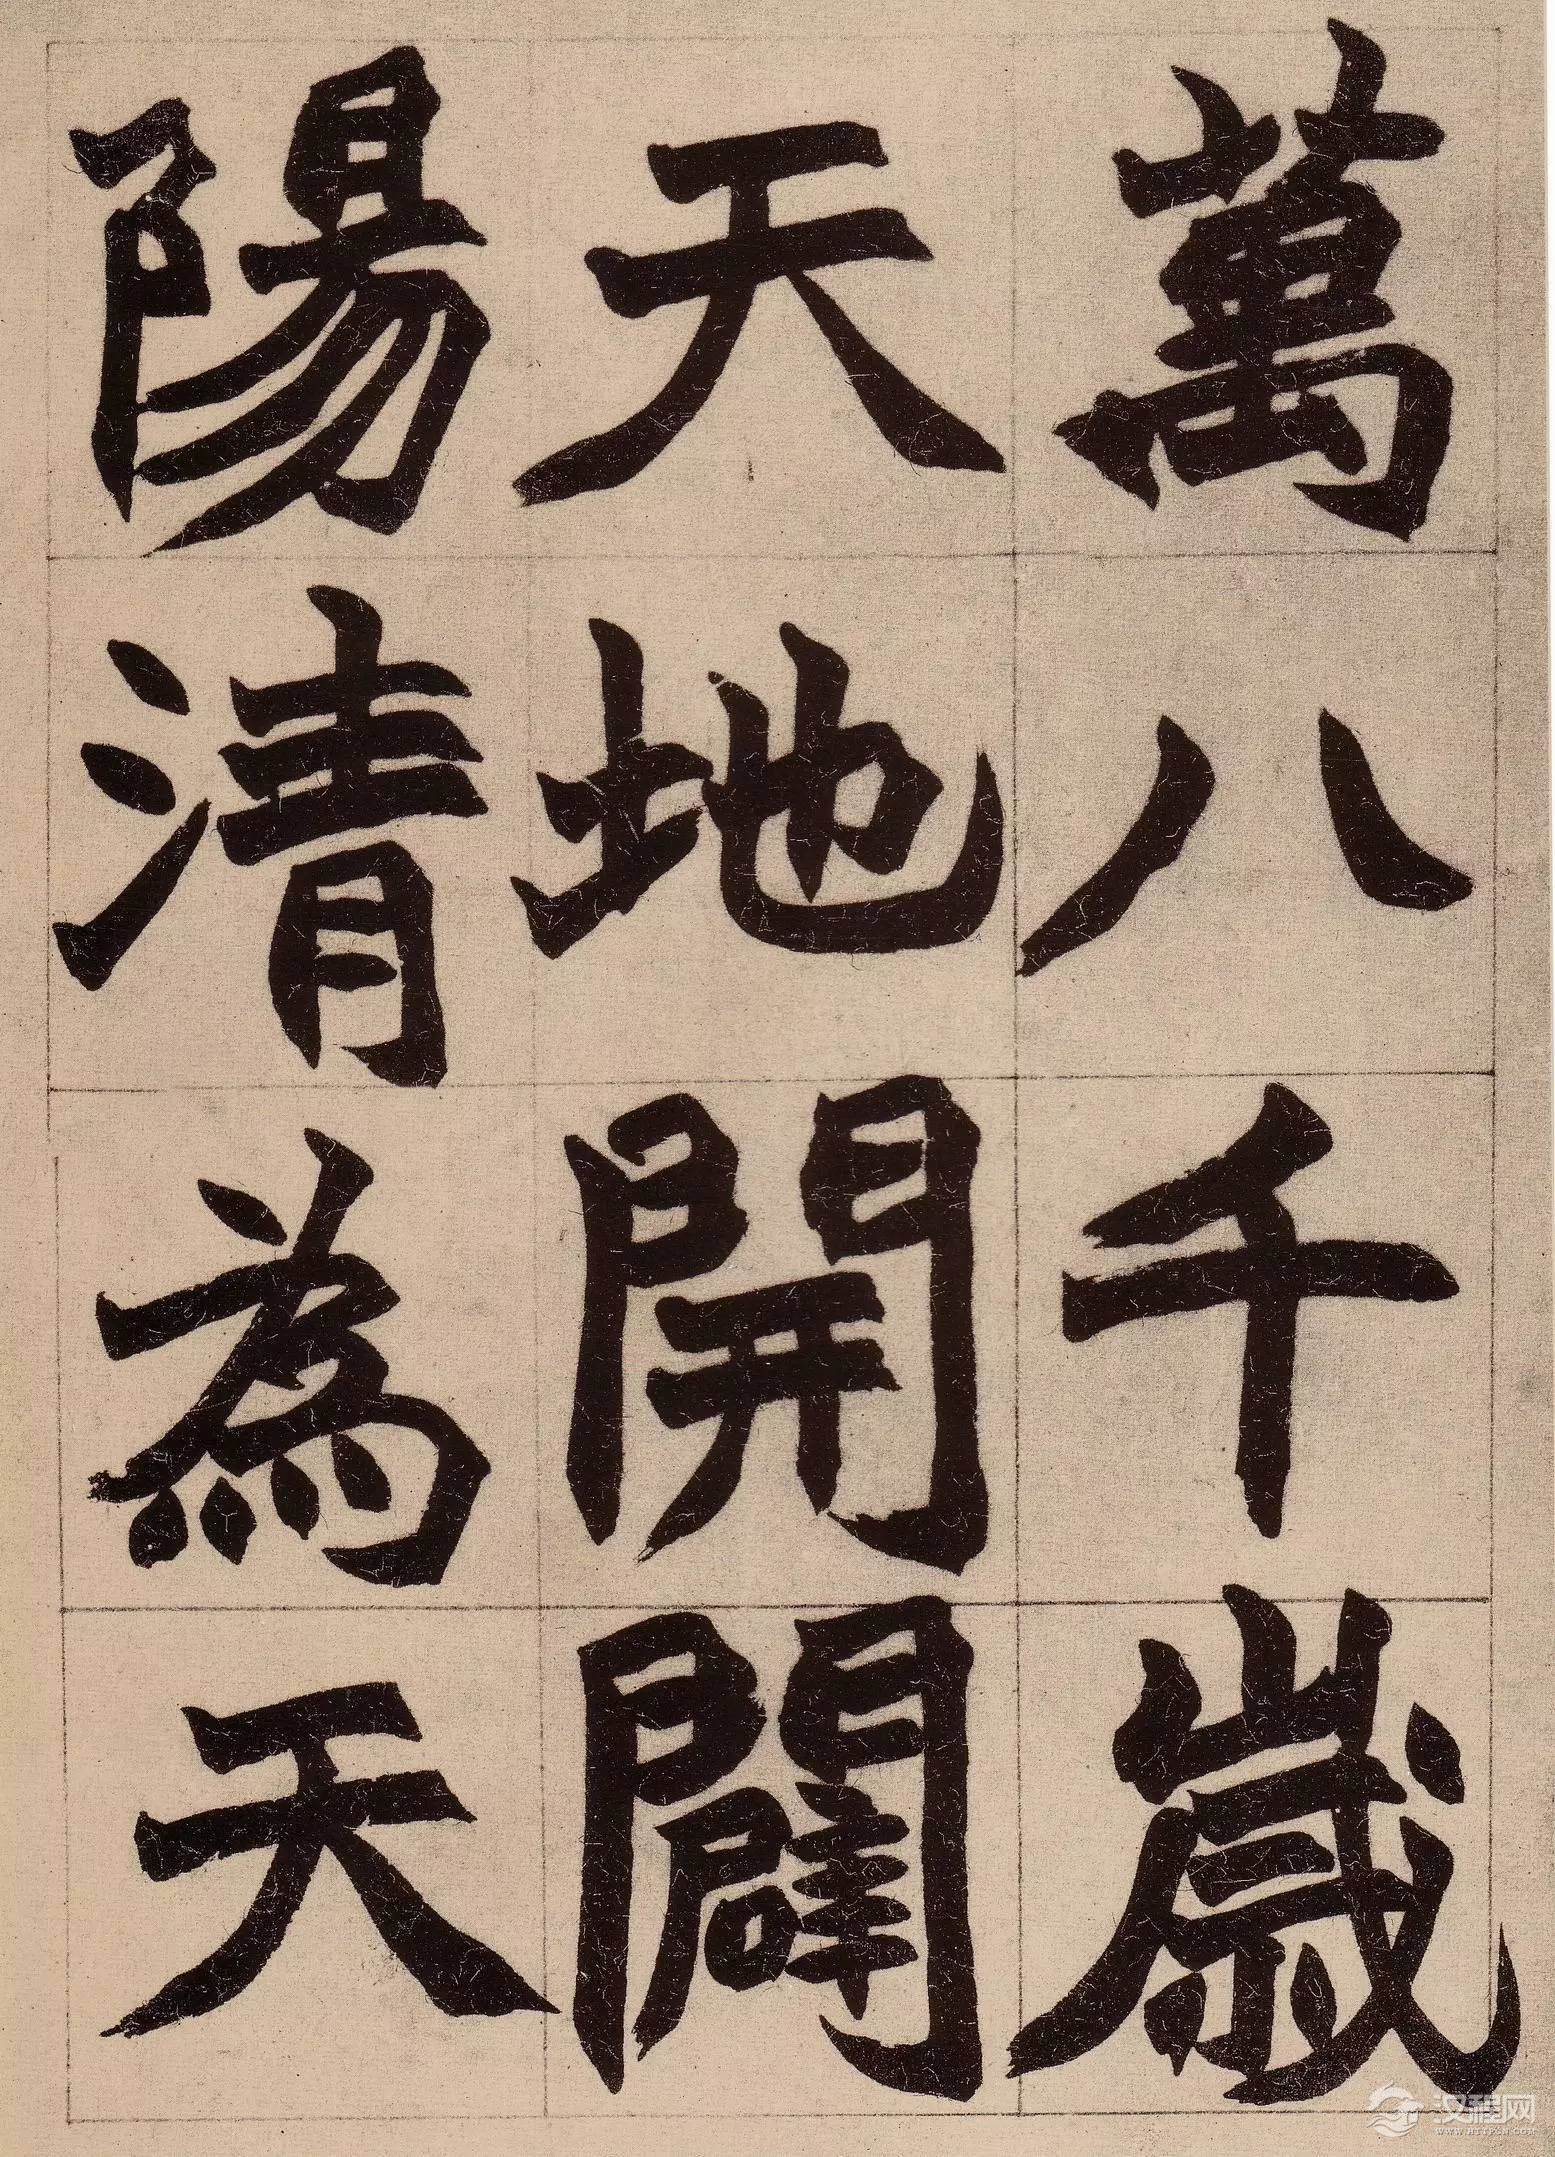 萬八千歲
天地開闢
陽清為天
汉程网
WWW.HTTPCN.COM